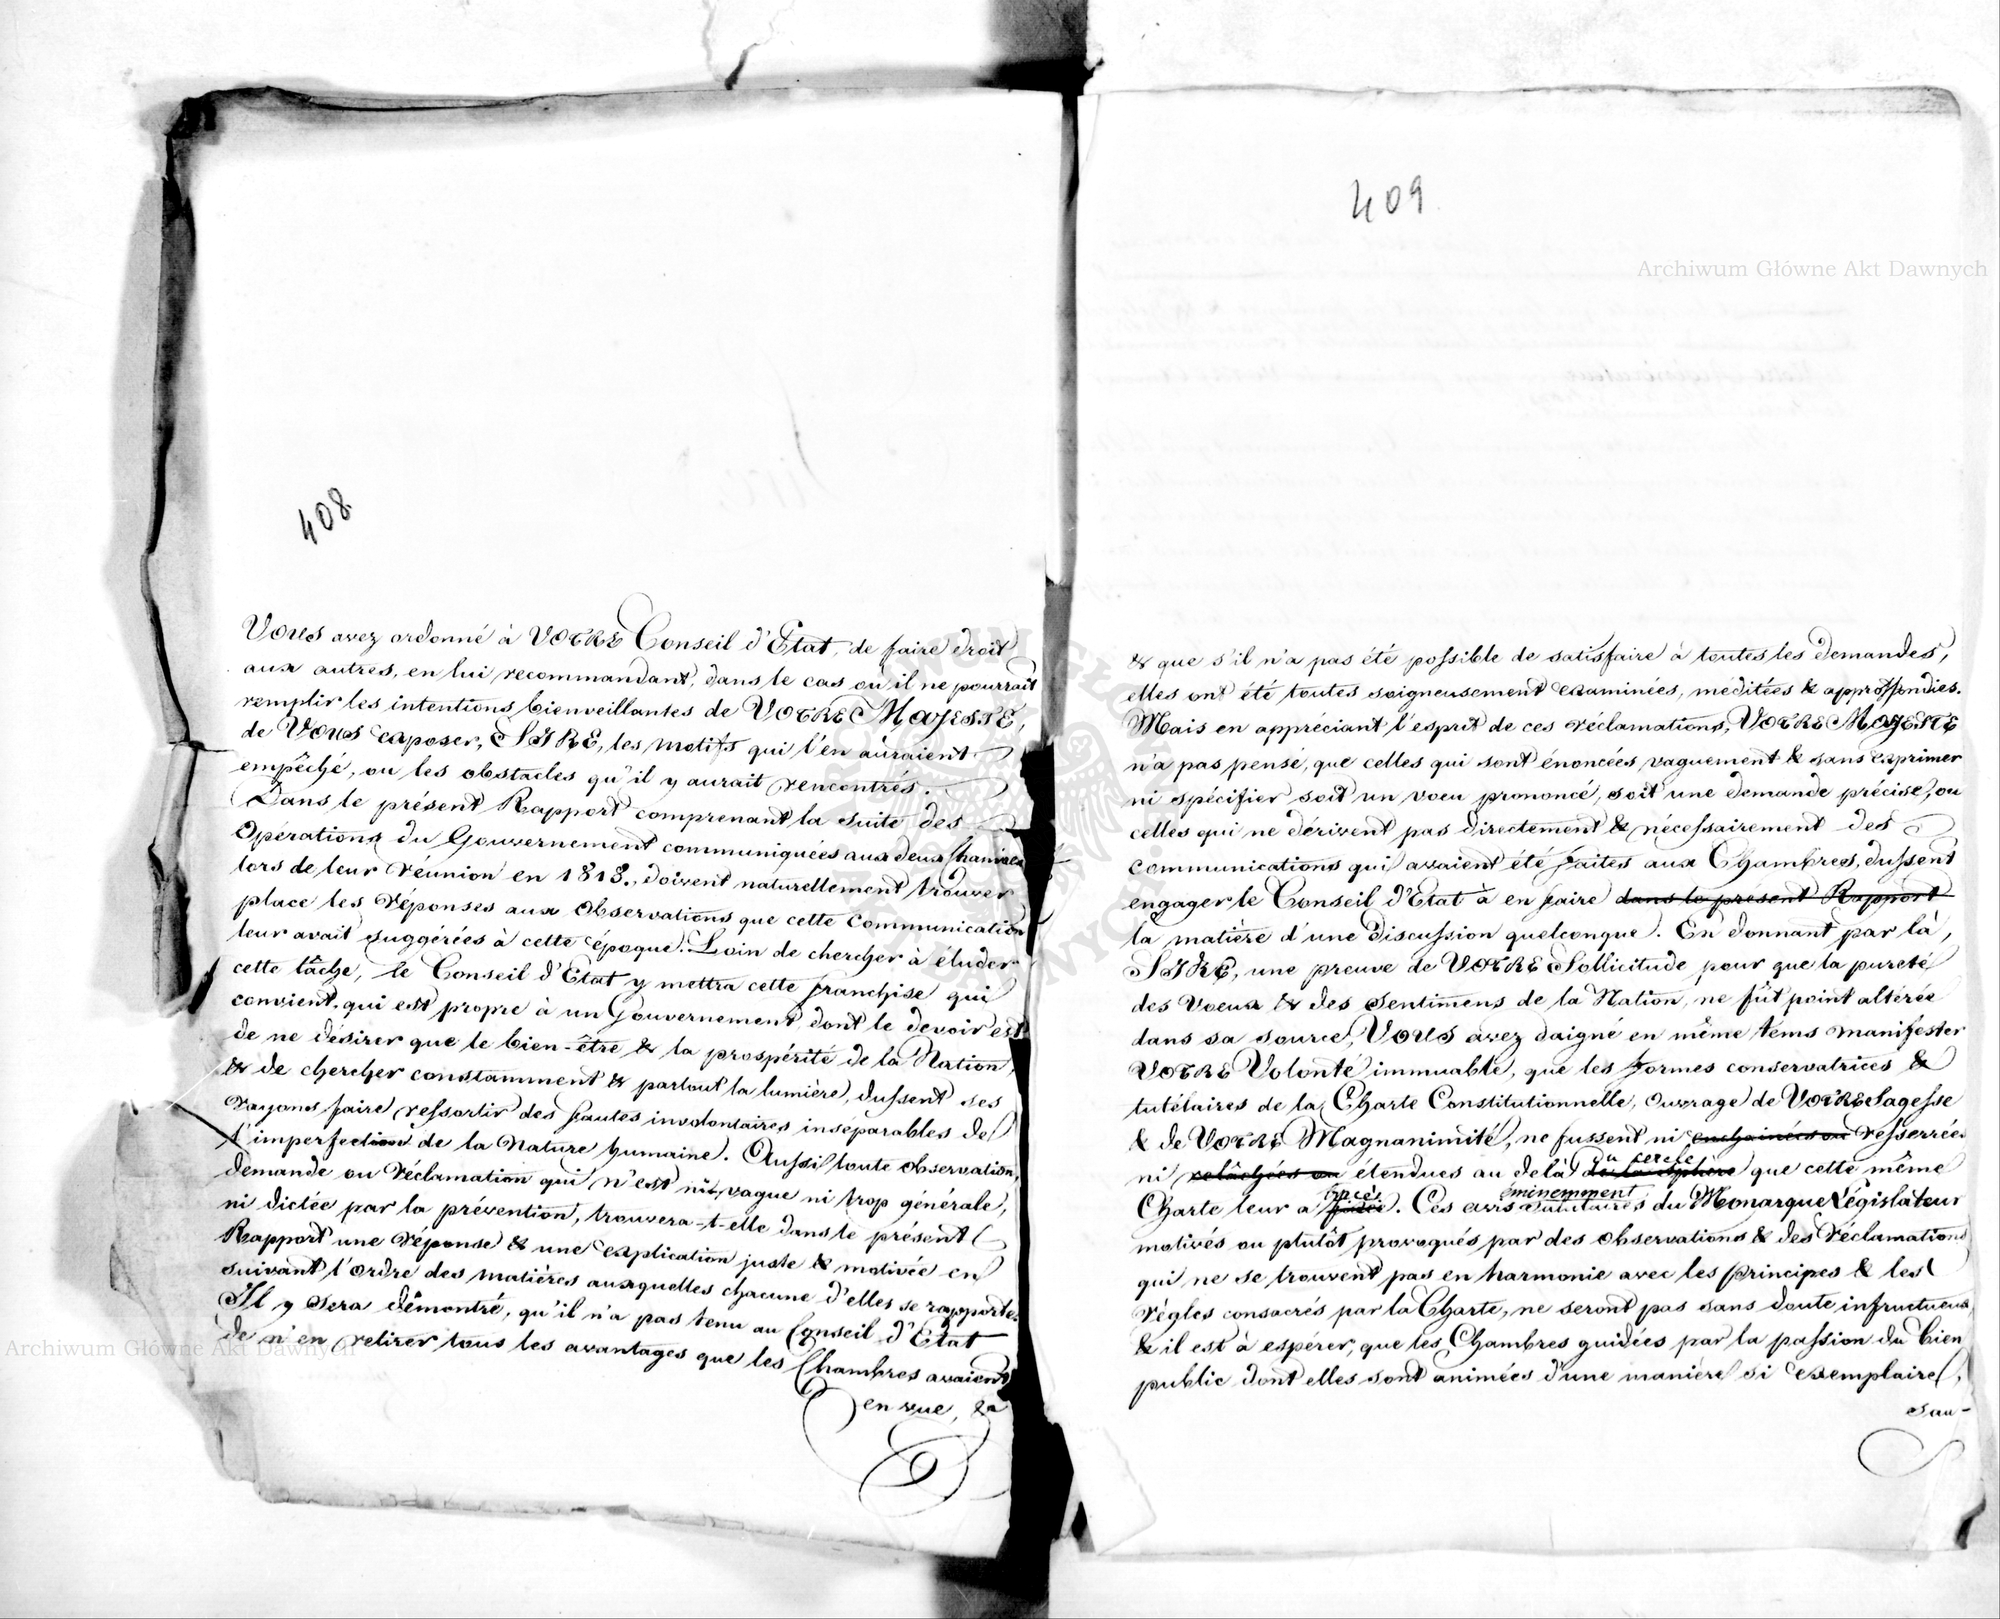 408
Vous avez ordonné à VOTRE Conseil d'Etat, de faire droit
aux autres, en lui recommandant, dans le cas où il ne pourrait
remplir les intentions bienveillantes de VOTRE MAJESTÉ,
de Vous exposer, SIRE, les motifs qui l'en auraient
empêché, ou les obstacles qu'il y aurait rencontrés.
Dans le présent Rapport comprenant la suite des
Opérations du Gouvernement communiquées aux deux Chambres
lors de leur réunion en 1818., doivent naturellement trouver
place les réponses aux observations que cette communication
leur avait suggérées à cette époque. Loin de chercher à éluder
cette tâche, le Conseil d'Etat y mettra cette franchise qui
convient, qui est propre à un Gouvernement, dont le devoir est
de ne désirer que le bien-être & la prospérité de la Nation,
& de chercher constamment & partout la lumière, dussent ses
rayons faire ressortir des fautes involontaires inséparables de
l'imperfection de la Nature humaine. Aussi toute observation,
demande ou réclamation qui n'est ni vague ni trop générale,
ni dictée par la prévention, trouvera-t-elle dans le présent
Rapport une réponse & une explication juste & motivée en
suivant l'ordre des matières auxquelles chacune d'elles se rapporte.
Il y sera démontré, qu'il n'a pas tenu au Conseil d'Etat
de n'en retirer tous les avantages que les Chambres avaient
en vue, &a
409
& que s'il n'a pas été possible de satisfaire à toutes les demandes,
elles ont été toutes soigneusement examinées, méditées & approffondies.
Mais en appréciant l'esprit de ces réclamations, VOTRE MAJESTÉ
n'a pas pensé, que celles qui sont énoncées vaguement & sans exprimer
ni spécifier soit un voeu prononcé, soit une demande précise, ou
celles qui ne dérivent pas directement & nécessairement des
communications qui avaient été faites aux Chambres, dussent
engager le Conseil d'Etat à en faire dans le présent Rapport
la matière d'une discussion quelconque. En donnant par là,
SIRE, une preuve de VOTRE Sollicitude, pour que la pureté
des voeux & des sentimens de la Nation, ne fût point altérée
dans sa source, VOUS avez daigné en même tems manifester
VOTRE Volonté immuable, que les formes conservatrices &
tutélaires de la Charte Constitutionnelle, Ouvrage de VOTRE Sagesse
& de VOTRE Magnanimité, ne fussent ni enchainées ou resserrées
du cercle
ni relâchées ou étendues au delà de la sphère que cette même
tracé éminemment
Charte leur a fixée. Ces avis salutaires du Monarque Législateur
motivés ou plutôt provoqués par des observations & des réclamations
qui ne se trouvent pas en harmonie avec les principes & les
règles consacrés par la Charte, ne seront pas sans doute infructueux,
& il est à espérer, que les Chambres guidées par la passion du bien
public dont elles sont animées d'une manière si exemplaire,
sau-
Archiwum Główne Akt Dawnych
Archiwum Główne Akt Dawnych